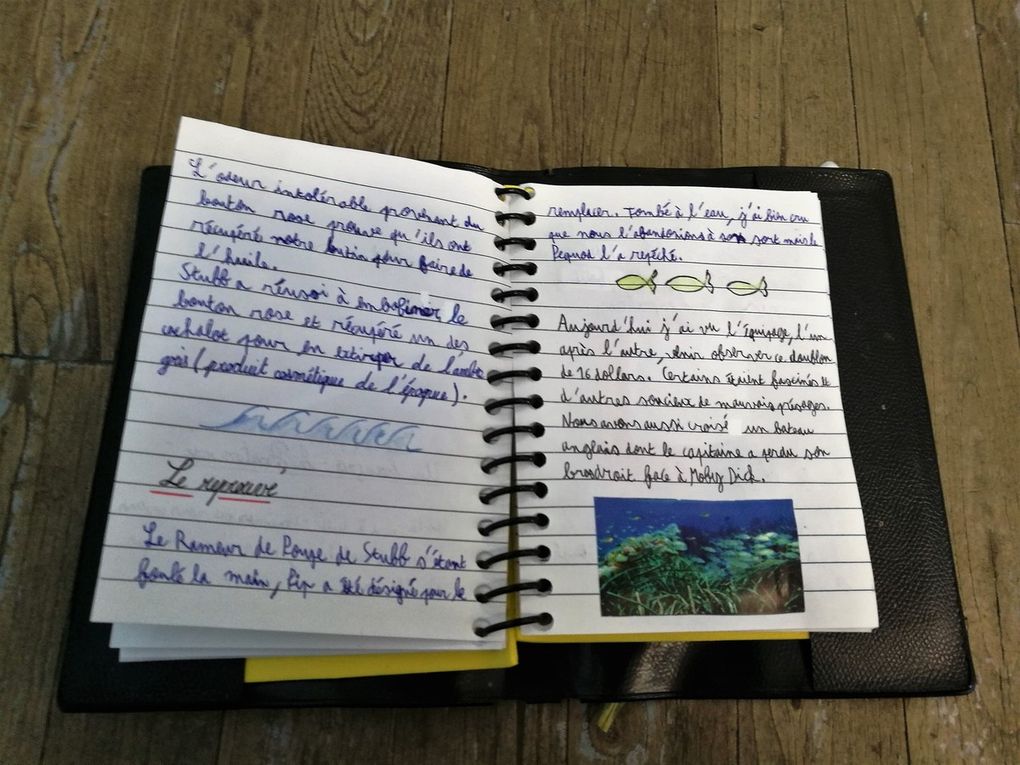 L'odeur intolérable provenant du
bouton rose prouve qu'ils ont
récupéré notre butin pour faire de
l'huile.
Stubb a réussi à embobiner le
bouton rose et récupéré un des
cachalot pour en extirper de l'ambre
gris (produit cosmétique de l'époque).
Le
Le Rameur de Pouge de Stubb s'étant
foulé la main, Pip a été désigné pour le
remplacer. Tombé à l'eau, j'ai bien cru
que nous l'abandonions à son sort mais le
Pequod l'a repêché.
Aujourd'hui j'ai vu l'équipage, l'un
après l'autre, venir observer ce doublon
de 16 dollars. Certains étaint fascinés et
d'autres soucieux de mauvais présages.
Nous avons aussi croisé un bateau
anglais dont le capitaine a perdu son
bras droit face à Moby Dick.